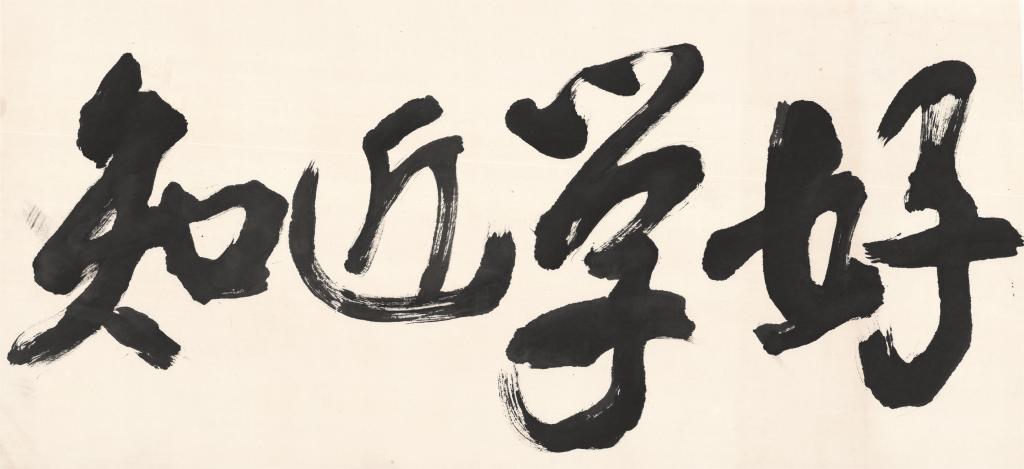 好学近知